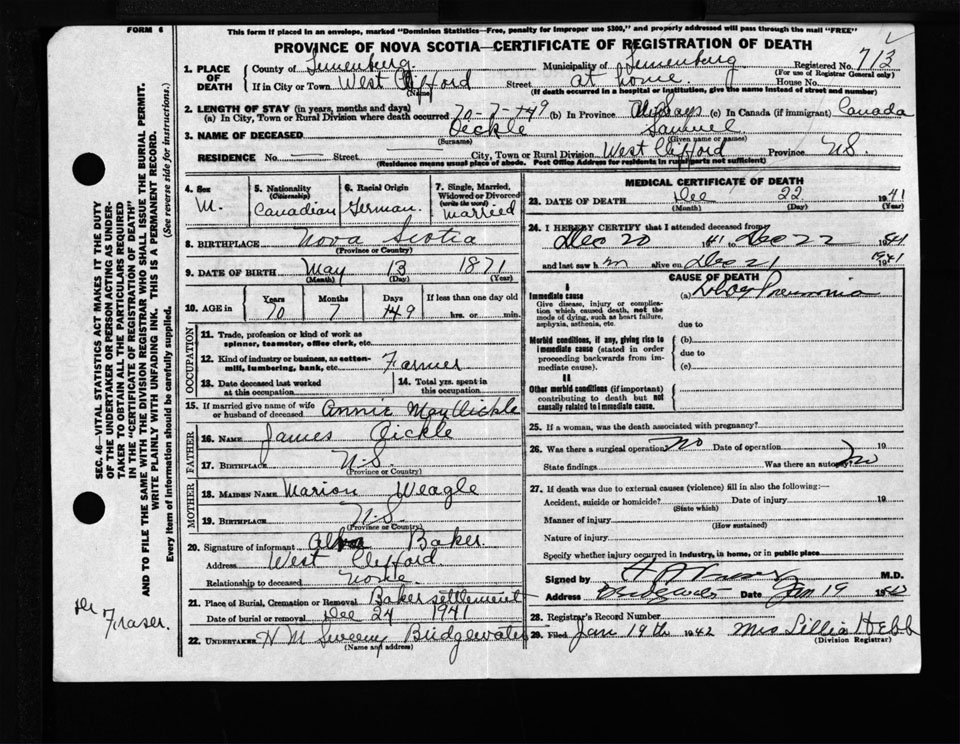 This form if placed in an envelope, marked "Dominion Statistics—Free, penalty for improper use $300," and properly addressed will pass through the mail "FREE"
FORM 6
PROVINCE OF NOVA SCOTIA—CERTIFICATE OF REGISTRATION OF DEATH
1. PLACE OF DEATH
County of Lunenburg Municipality of Lunenburg Registered No. 713
(For use of Registrar General only)
If in City or Town West Clifford Street at home. House No.
(Name) (If death occurred in a hospital or institution, give the name instead of street and number)
2. LENGTH OF STAY (in years, months and days)
(a) In City, Town or Rural Division where death occurred 70-7-49 (b) In Province Always (c) In Canada (if immigrant) Canada
3. NAME OF DECEASED Oickle Samuel
(Surname) (Given name or names)
RESIDENCE No. — Street — City, Town or Rural Division West Clifford Province NS.
(Residence means usual place of abode. Post Office Address for residents in rural parts not sufficient)
4. Sex M. 5. Nationality (Citizenship) Canadian 6. Racial Origin German. 7. Single, Married, Widowed or Divorced (write the word) Married
8. BIRTHPLACE Nova Scotia
(Province or Country)
9. DATE OF BIRTH May 13 1871
(Month) (Day) (Year)
10. AGE in Years 70 Months 7 Days 9 If less than one day old hrs. or min.
OCCUPATION
11. Trade, profession or kind of work as spinner, teamster, office clerk, etc.
12. Kind of industry or business, as cotton-mill, lumbering, bank, etc. Farmer
13. Date deceased last worked at this occupation
14. Total yrs. spent in this occupation
15. If married give name of wife or husband of deceased Annie May Oickle
FATHER
16. NAME James Oickle
17. BIRTHPLACE N.S.
(Province or Country)
MOTHER
18. MAIDEN NAME Marion Weagle
19. BIRTHPLACE N.S.
(Province or Country)
20. Signature of informant Baker.
Address West Clifford.
Relationship to deceased None.
21. Place of Burial, Cremation or Removal Baker settlement
Date of burial or removal Dec 24 1941
22. UNDERTAKER H M Sweeny Bridgewater
(Name and address)
MEDICAL CERTIFICATE OF DEATH
23. DATE OF DEATH Dec 22 1941
(Month) (Day) (Year)
24. I HEREBY CERTIFY that I attended deceased from
Dec 20 1941 to Dec 22 1941
and last saw h m alive on Dec 21 1941
CAUSE OF DEATH
I
Immediate cause (a) Lobar Pneumonia
Give disease, injury or complication which caused death, not the mode of dying, such as heart failure, asphyxia, asthenia, etc.
due to
Morbid conditions, if any, giving rise to immediate cause (stated in order proceeding backwards from immediate cause).
(b)
due to
(c)
II
Other morbid conditions (if important) contributing to death but not causally related to immediate cause.
25. If a woman, was the death associated with pregnancy?
26. Was there a surgical operation? No Date of operation 19
State findings Was there an autopsy? no
27. If death was due to external causes (violence) fill in also the following:—
Accident, suicide or homicide? Date of injury 19
(State which)
Manner of injury
(How sustained)
Nature of injury
Specify whether injury occurred in industry, in home, or in public place
Signed by M.D.
Address Bridgewater Date Jan 19 1942
28. Registrar's Record Number
29. Filed Jan 19th 1942 Mrs Lillia Hebb
(Division Registrar)
SEC. 46—VITAL STATISTICS ACT MAKES IT THE DUTY
OF THE UNDERTAKER OR PERSON ACTING AS UNDER-
TAKER TO OBTAIN ALL THE PARTICULARS REQUIRED
IN THE "CERTIFICATE OF REGISTRATION OF DEATH"
AND TO FILE THE SAME WITH THE DIVISION REGISTRAR WHO SHALL ISSUE THE BURIAL PERMIT.
WRITE PLAINLY WITH UNFADING INK. THIS IS A PERMANENT RECORD.
Every item of information should be carefully supplied. (See reverse side for instructions.)
Dr Fraser.